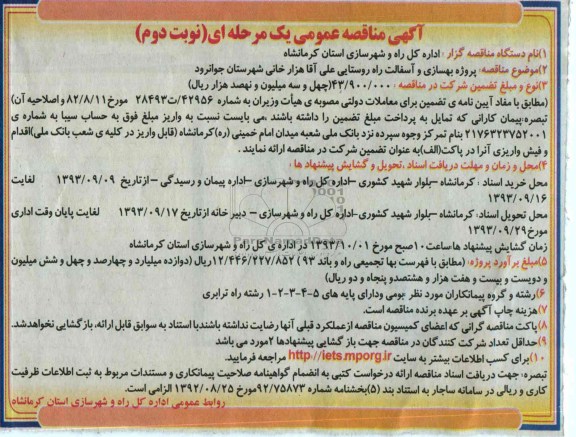 آگهی مناقصه عمومی یک مرحله ای(نوبت دوم)
۱)نام دستگاه مناقصه گزار : اداره کل راه و شهرسازی استان کرمانشاه
۲)موضوع مناقصه: پروژه بهسازی و آسفالت راه روستایی علی آقا هزار خانی شهرستان جوانرود
۳)نوع و مبلغ تضمین شرکت در مناقصه : ۴۳/۹۰۰/۰۰۰(چهل و سه میلیون و نهصد هزار ریال)
(مطابق با مفاد آیین نامه ی تضمین برای معاملات دولتی مصوبه ی هیأت وزیران به شماره ۴۲۹۵۶/ت۲۸۴۹۳ مورخ ۸۲/۸/۱۱ و اصلاحیه آن)
تبصره:پیمان کارانی که تمایل به پرداخت مبلغ تضمین را داشته باشند ،می بایست نسبت به واریز مبلغ فوق به حساب سیبا به شماره ی
۲۱۷۶۳۲۳۷۵۲۰۰۱ بنام تمرکز وجوه سپرده نزد بانک ملی شعبه میدان امام خمینی (ره)کرمانشاه (قابل واریز در کلیه ی شعب بانک ملی)اقدام
و فیش واریزی آنرا در پاکت(الف)به عنوان تضمین شرکت در مناقصه ارائه نمایند .
۴)محل و زمان و مهلت دریافت اسناد ،تحویل و گشایش پیشنهاد ها :
محل خرید اسناد : کرمانشاه –بلوار شهید کشوری –اداره کل راه و شهرسازی –اداره پیمان و رسیدگی – از تاریخ ۱۳۹۳/۰۹/۰۹ لغایت
۱۳۹۳/۰۹/۱۶
محل تحویل اسناد: کرمانشاه –بلوار شهید کشوری-اداره کل راه و شهرسازی – دبیر خانه از تاریخ ۱۳۹۳/۰۹/۱۷ لغایت پایان وقت اداری
مورخ ۱۳۹۳/۰۹/۲۹
زمان گشایش پیشنهاد ها ساعت ۱۰صبح مورخ ۱۳۹۳/۱۰/۰۱ در اداره ی کل راه و شهرسازی استان کرمانشاه
۵)مبلغ برآورد پروژه: (مطابق با فهرست بها تجمیعی راه و باند ۹۳) ۱۲/۴۴۶/۲۲۷/۸۵۲ریال (دوازده میلیارد و چهارصد و چهل و شش میلیون
و دویست و بیست و هفت هزار و هشتصدو پنجاه و دو ریال)
۶)رشته و گروه پیمانکاران مورد نظر بومی ودارای پایه های ۵-۴-۳-۲-۱ رشته راه ترابری
۷)هزینه چاپ آگهی بر عهده برنده مناقصه است.
۸)پاکت مناقصه گرانی که اعضای کمیسیون مناقصه ازعملکرد قبلی آنها رضایت نداشته باشندبا استناد به سوابق قابل ارائه، بازگشایی نخواهدشد.
۹)حداقل تعداد شرکت کنندگان در مناقصه جهت باز گشایی پیشنهادها ۲مورد می باشد
۱۰)برای کسب اطلاعات بیشتر به سایت http://iets.mporg.ir مراجعه فرمایید.
تبصره: جهت دریافت اسناد مناقصه ارائه درخواست کتبی به انضمام گواهینامه صلاحیت پیمانکاری و مستندات مربوط به ثبت اطلاعات ظرفیت
کاری و ریالی در سامانه ساجار به استناد بند (۵)بخشنامه شماره ۹۲/۷۵۸۷۳مورخ ۱۳۹۲/۰۸/۲۵ الزامی است.
روابط عمومی اداره کل راه و شهرسازی استان کرمانشاه